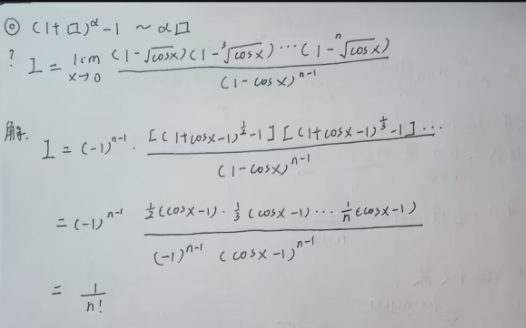 ◎ (1+□)^α -1 ~ α□
? I = lim_{x→0} \frac{(1-\sqrt{cosx})(1-\sqrt[3]{cosx})⋯(1-\sqrt[n]{cosx})}{(1-cosx)^{n-1}}
解. I = (-1)^{n-1} · \frac{[(1+cosx-1)^{\frac{1}{2}}-1][(1+cosx-1)^{\frac{1}{3}}-1]⋯}{(1-cosx)^{n-1}}
= (-1)^{n-1} \frac{\frac{1}{2}(cosx-1)·\frac{1}{3}(cosx-1)⋯\frac{1}{n}(cosx-1)}{(-1)^{n-1}(cosx-1)^{n-1}}
= \frac{1}{n!}